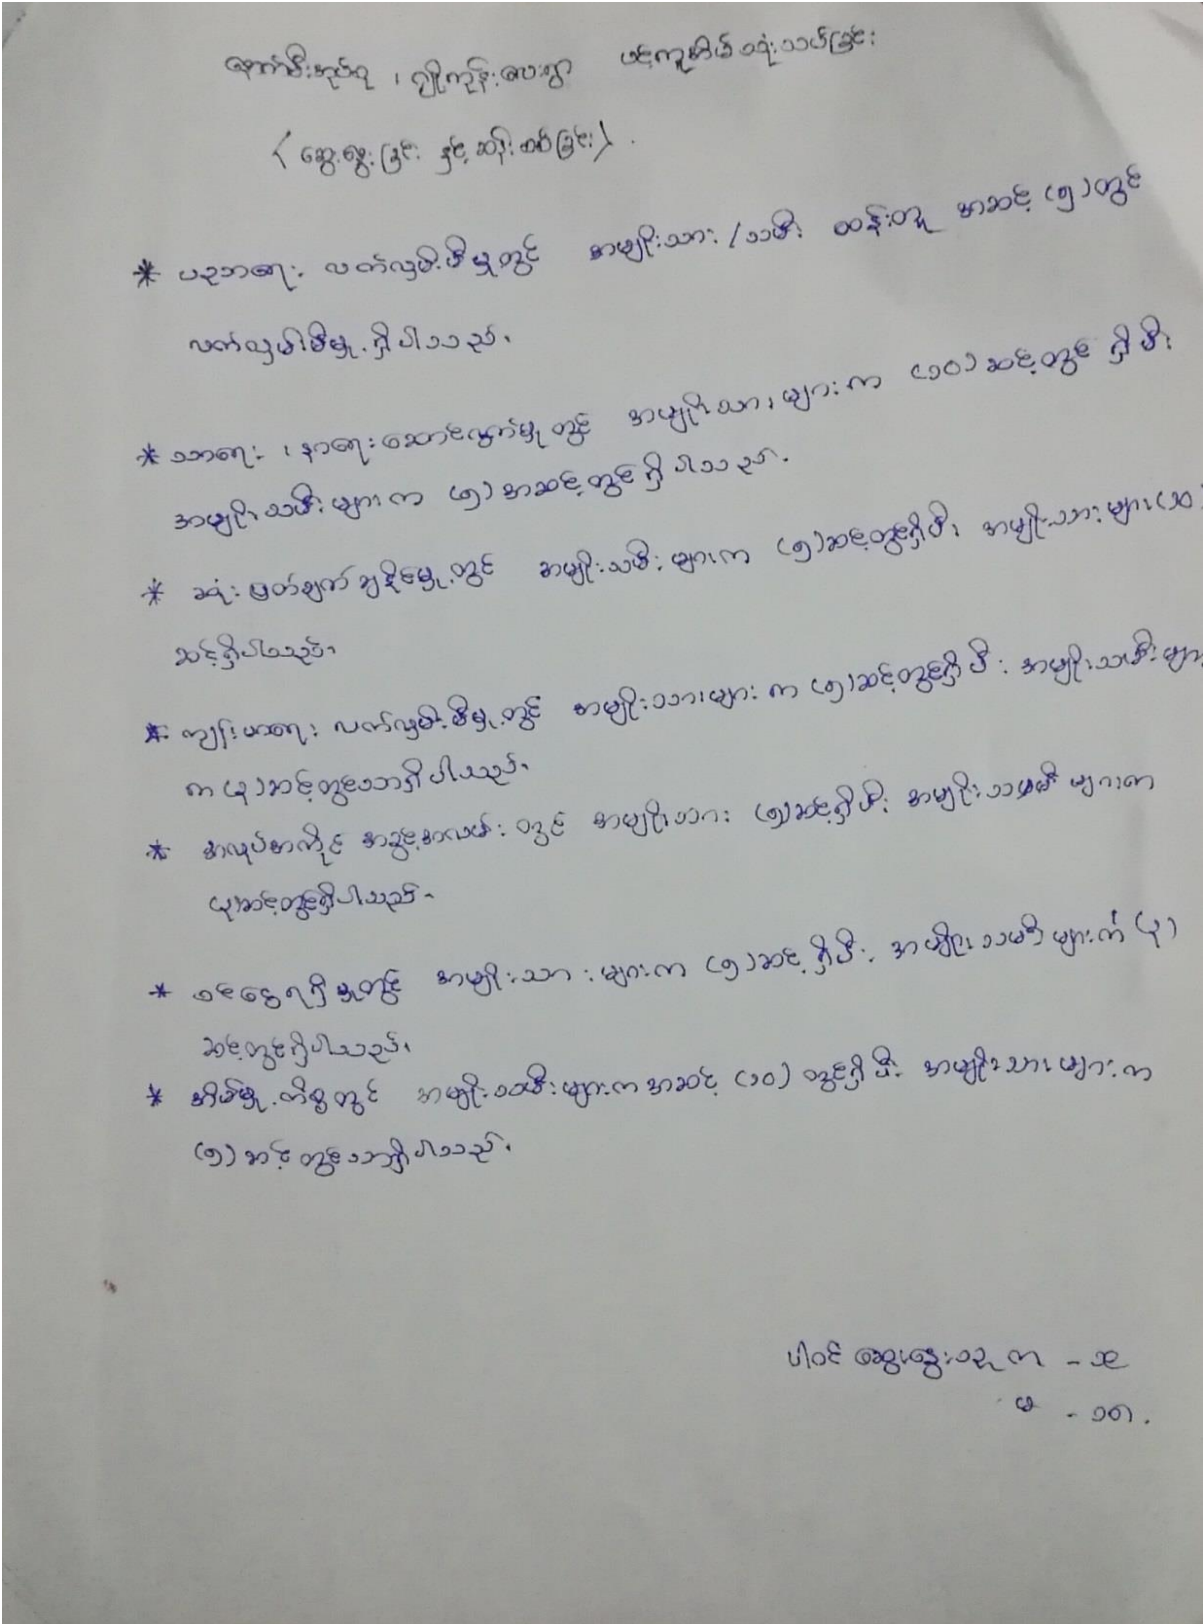 နောက်မီးအုပ်စု ၊ ဂျိုကုန်းလေးရွာ ပင့်ကူအိမ်သုံးသပ်ခြင်း
(ဆွေးနွေးခြင်း နှင့် ဆန်းစစ်ခြင်း) .
* ပညာရေး လက်လှမ်းမီမှုတွင် အမျိုးသား /သမီး ထန်းတူ အဆင့် (၅)တွင်
လက်လှမ်းမီမှု ရှိပါသည်။
* သာရေး ၊ နာရေးဆောင်ရွက်မှုတွင် အမျိုးသားများက (၁၀)ဆင့်တွင် ရှိပြီး
အမျိုးသမီးများက (၅)အဆင့်တွင်ရှိပါသည်။
* ဆုံးဖြတ်ချက်ချနိုင်မှုတွင် အမျိုးသမီးများက (၅)ဆင့်တွင်ရှိပြီး အမျိုးသားများ(၁၀)
ဆင့်ရှိပါသည်။
* ကျန်းမာရေး လက်လှမ်းမီမှုတွင် အမျိုးသားများ က (၅)ဆင့်တွင်ရှိပြီး အမျိုးသမီးများ
က (၃)ဆင့်တွင်သာရှိပါသည်။
* အလုပ်အကိုင် အခွင့်အလမ်း တွင် အမျိုးသား (၅)ဆင့်ရှိပြီး အမျိုးသမီးများက
(၃)ဆင့်တွင်ရှိပါသည်။
* ဝင်ငွေရရှိမှုတွင် အမျိုးသားများက (၅)ဆင့်ရှိပြီး အမျိုးသမီးများက (၃)
ဆင့်တွင်ရှိပါသည်။
* အိမ်မှုကိစ္စတွင် အမျိုးသမီးများကအဆင့် (၁၀) တွင်ရှိပြီး အမျိုးသားများက
(၅) ဆင့်တွင်သာရှိပါသည်။
ပါဝင် ဆွေးနွေးသူ က -
မ -